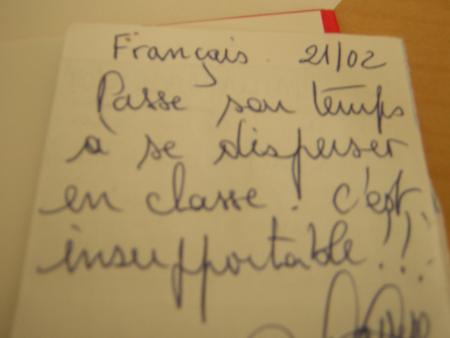 Français 21/02
Passe son temps
à se disperser
en classe ! c'est
insupportable !!!